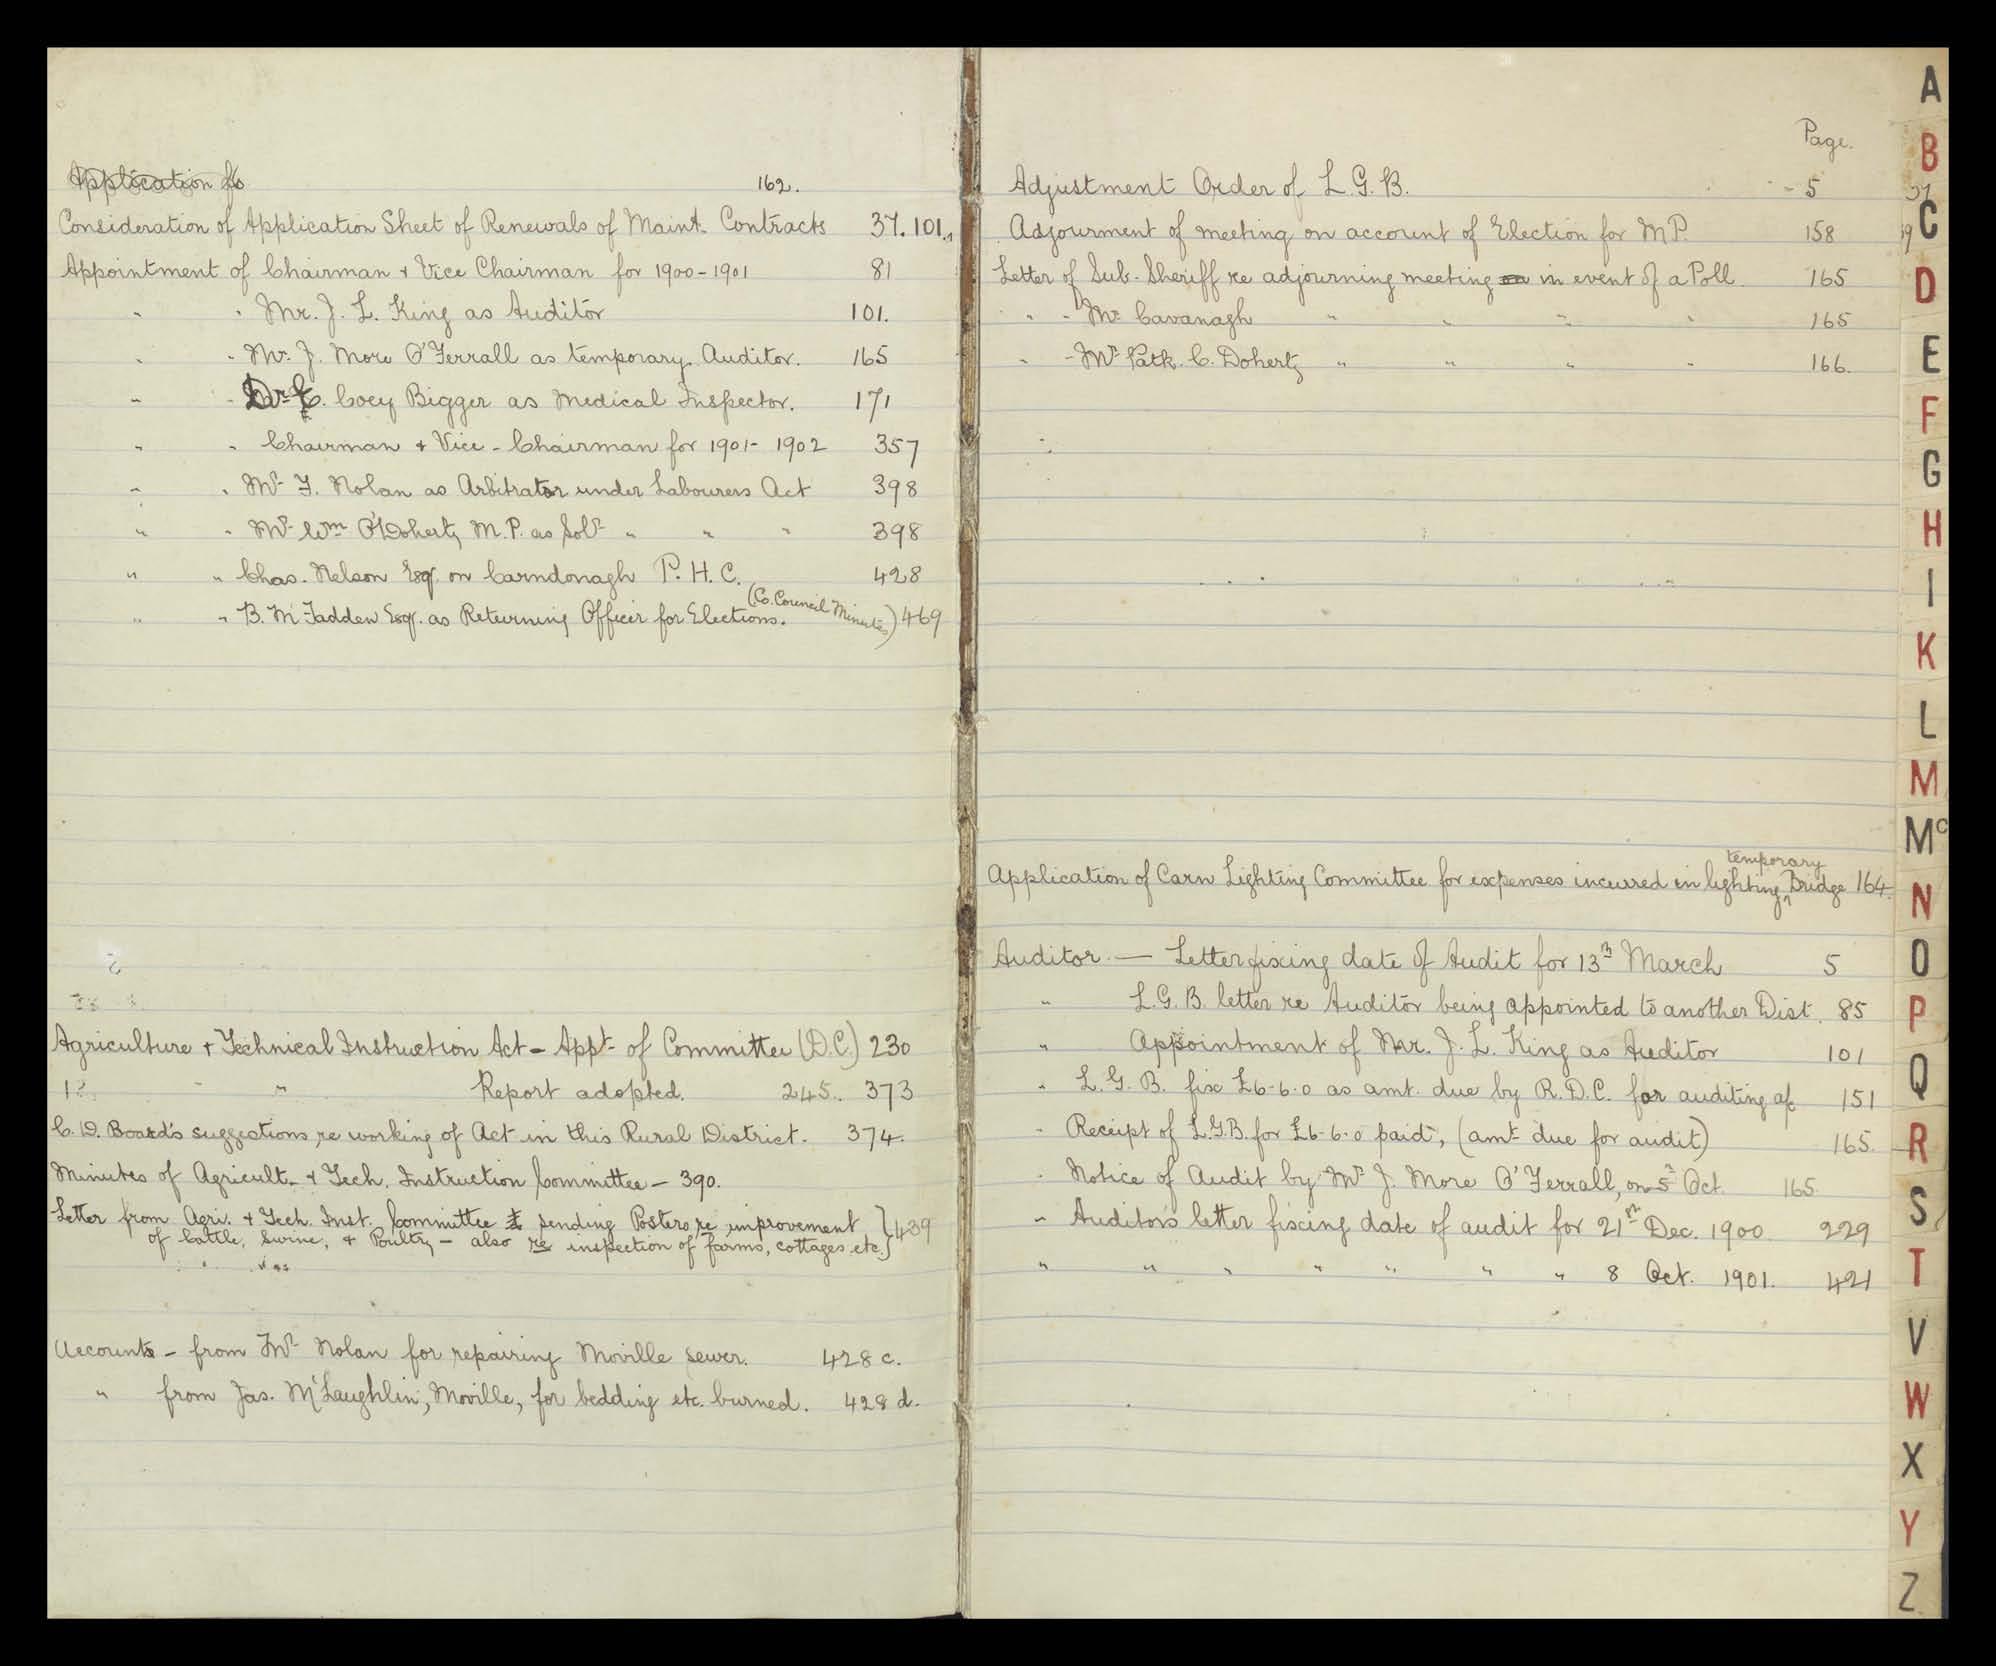 Application fo
162.
Consideration of Application Sheet of Renewals of Maint. Contracts 37. 101.
Appointment of Chairman + Vice Chairman for 1900-1901 81
" " Mr. J. L. King as Auditor 101.
" " Mr. J. More O'Ferrall as temporary Auditor. 165
" " Dr. E. Coey Bigger as Medical Inspector. 171
" " Chairman + Vice-Chairman for 1901-1902 357
" " Mr. F. Nolan as Arbitrator under Labourers Act 398
" " Mr. Wm O'Doherty M.P. as Solr " " " 398
" " Chas. Nelson Esqr. on Carndonagh P. H. C. 428
" " B. McFadden Esqr. as Returning Officer for Elections. (Co. Council Minutes) 469
Agriculture + Technical Instruction Act - Appt. of Committee (D.C.) 230
" " Report adopted. 245. 373
C. D. Board's suggestions re working of Act in this Rural District. 374.
Minutes of Agricult. + Tech. Instruction Committee - 390.
Letter from Agri. + Tech. Inst. Committee sending Posters re improvement } 439
of Cattle, Swine, + Poultry - also re inspection of farms, cottages etc.}
Accounts - from Mr. Nolan for repairing Moville sewer. 428 c.
" from Jas. McLaughlin, Moville, for bedding etc. burned. 428 d.
Page.
Adjustment Order of L.G.B. - 5
Adjournment of meeting on account of Election for M.P. 158
Letter of Sub-Sheriff re adjourning meeting in event of a Poll 165
" " Mr. Cavanagh " " " " 165
" " Mr. Patk. C. Doherty " " " " 166.
Application of Carn Lighting Committee for expenses incurred in lighting temporary Bridge 164
Auditor - Letter fixing date of Audit for 13th March 5
" L.G.B. letter re Auditor being appointed to another Dist. 85
" Appointment of Mr. J. L. King as Auditor 101
" L.G.B. fix £6-6-0 as amt. due by R.D.C. for auditing a/c 151
" Receipt of L.G.B. for £6-6-0 paid, (amt. due for audit) 165
" Notice of Audit by Mr. J. More O'Ferrall, on 5th Oct. 165
" Auditor's letter fixing date of audit for 21st Dec. 1900 229
" " " " " " " 8 Oct. 1901. 421
A
B
C
D
E
F
G
H
I
K
L
M
Mc
N
O
P
Q
R
S
T
V
W
X
Y
Z